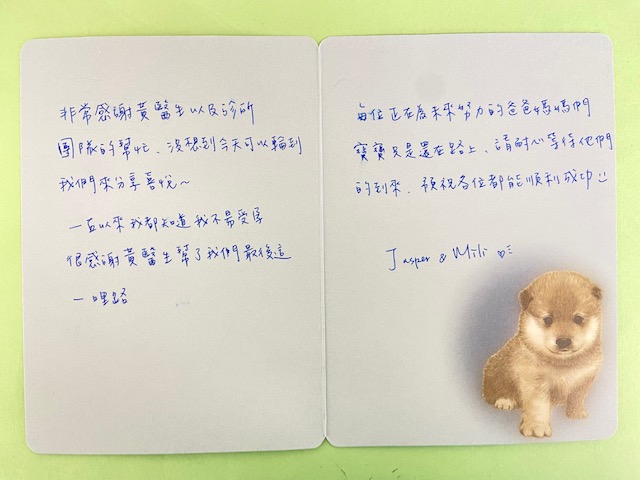 非常感謝黃醫生以及診所
團隊的幫忙、沒想到今天可以輪到
我們來分享喜悅~
一直以來我都知道我不易受孕
很感謝黃醫生幫了我們最後這
一哩路
每位正在為未來努力的爸爸媽媽們
寶寶只是還在路上、請耐心等待他們
的到來、預祝各位都能順利成功
Jasper & Mili